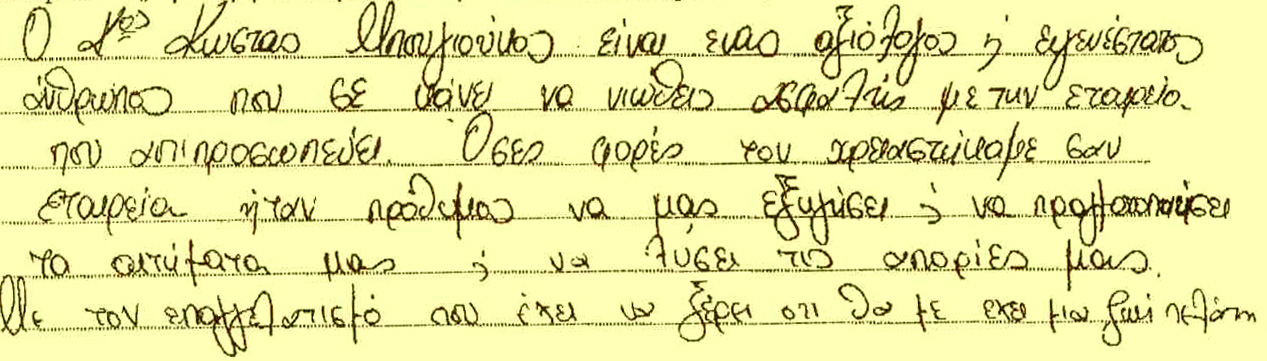 Ο Κος Κώστας Μπουγιούκος είναι ενας αξιόλογος ϗ ευγενέστατος
άνθρωπος που σε κάνει να νιώθεις ασφαλής με την εταιρεία
που αντιπροσωπεύει. Όσες φορές τον χρειαστήκαμε σαν
εταιρεία ήταν πρόθυμος να μας εξυγήσει ϗ να πραγματοποιήσει
τα αιτήματα μας ϗ να λύσει τις απορίες μας.
Με τον επαγγελματισμό που έχει να ξέρει οτι θα με εχει μια ζωή πελάτη